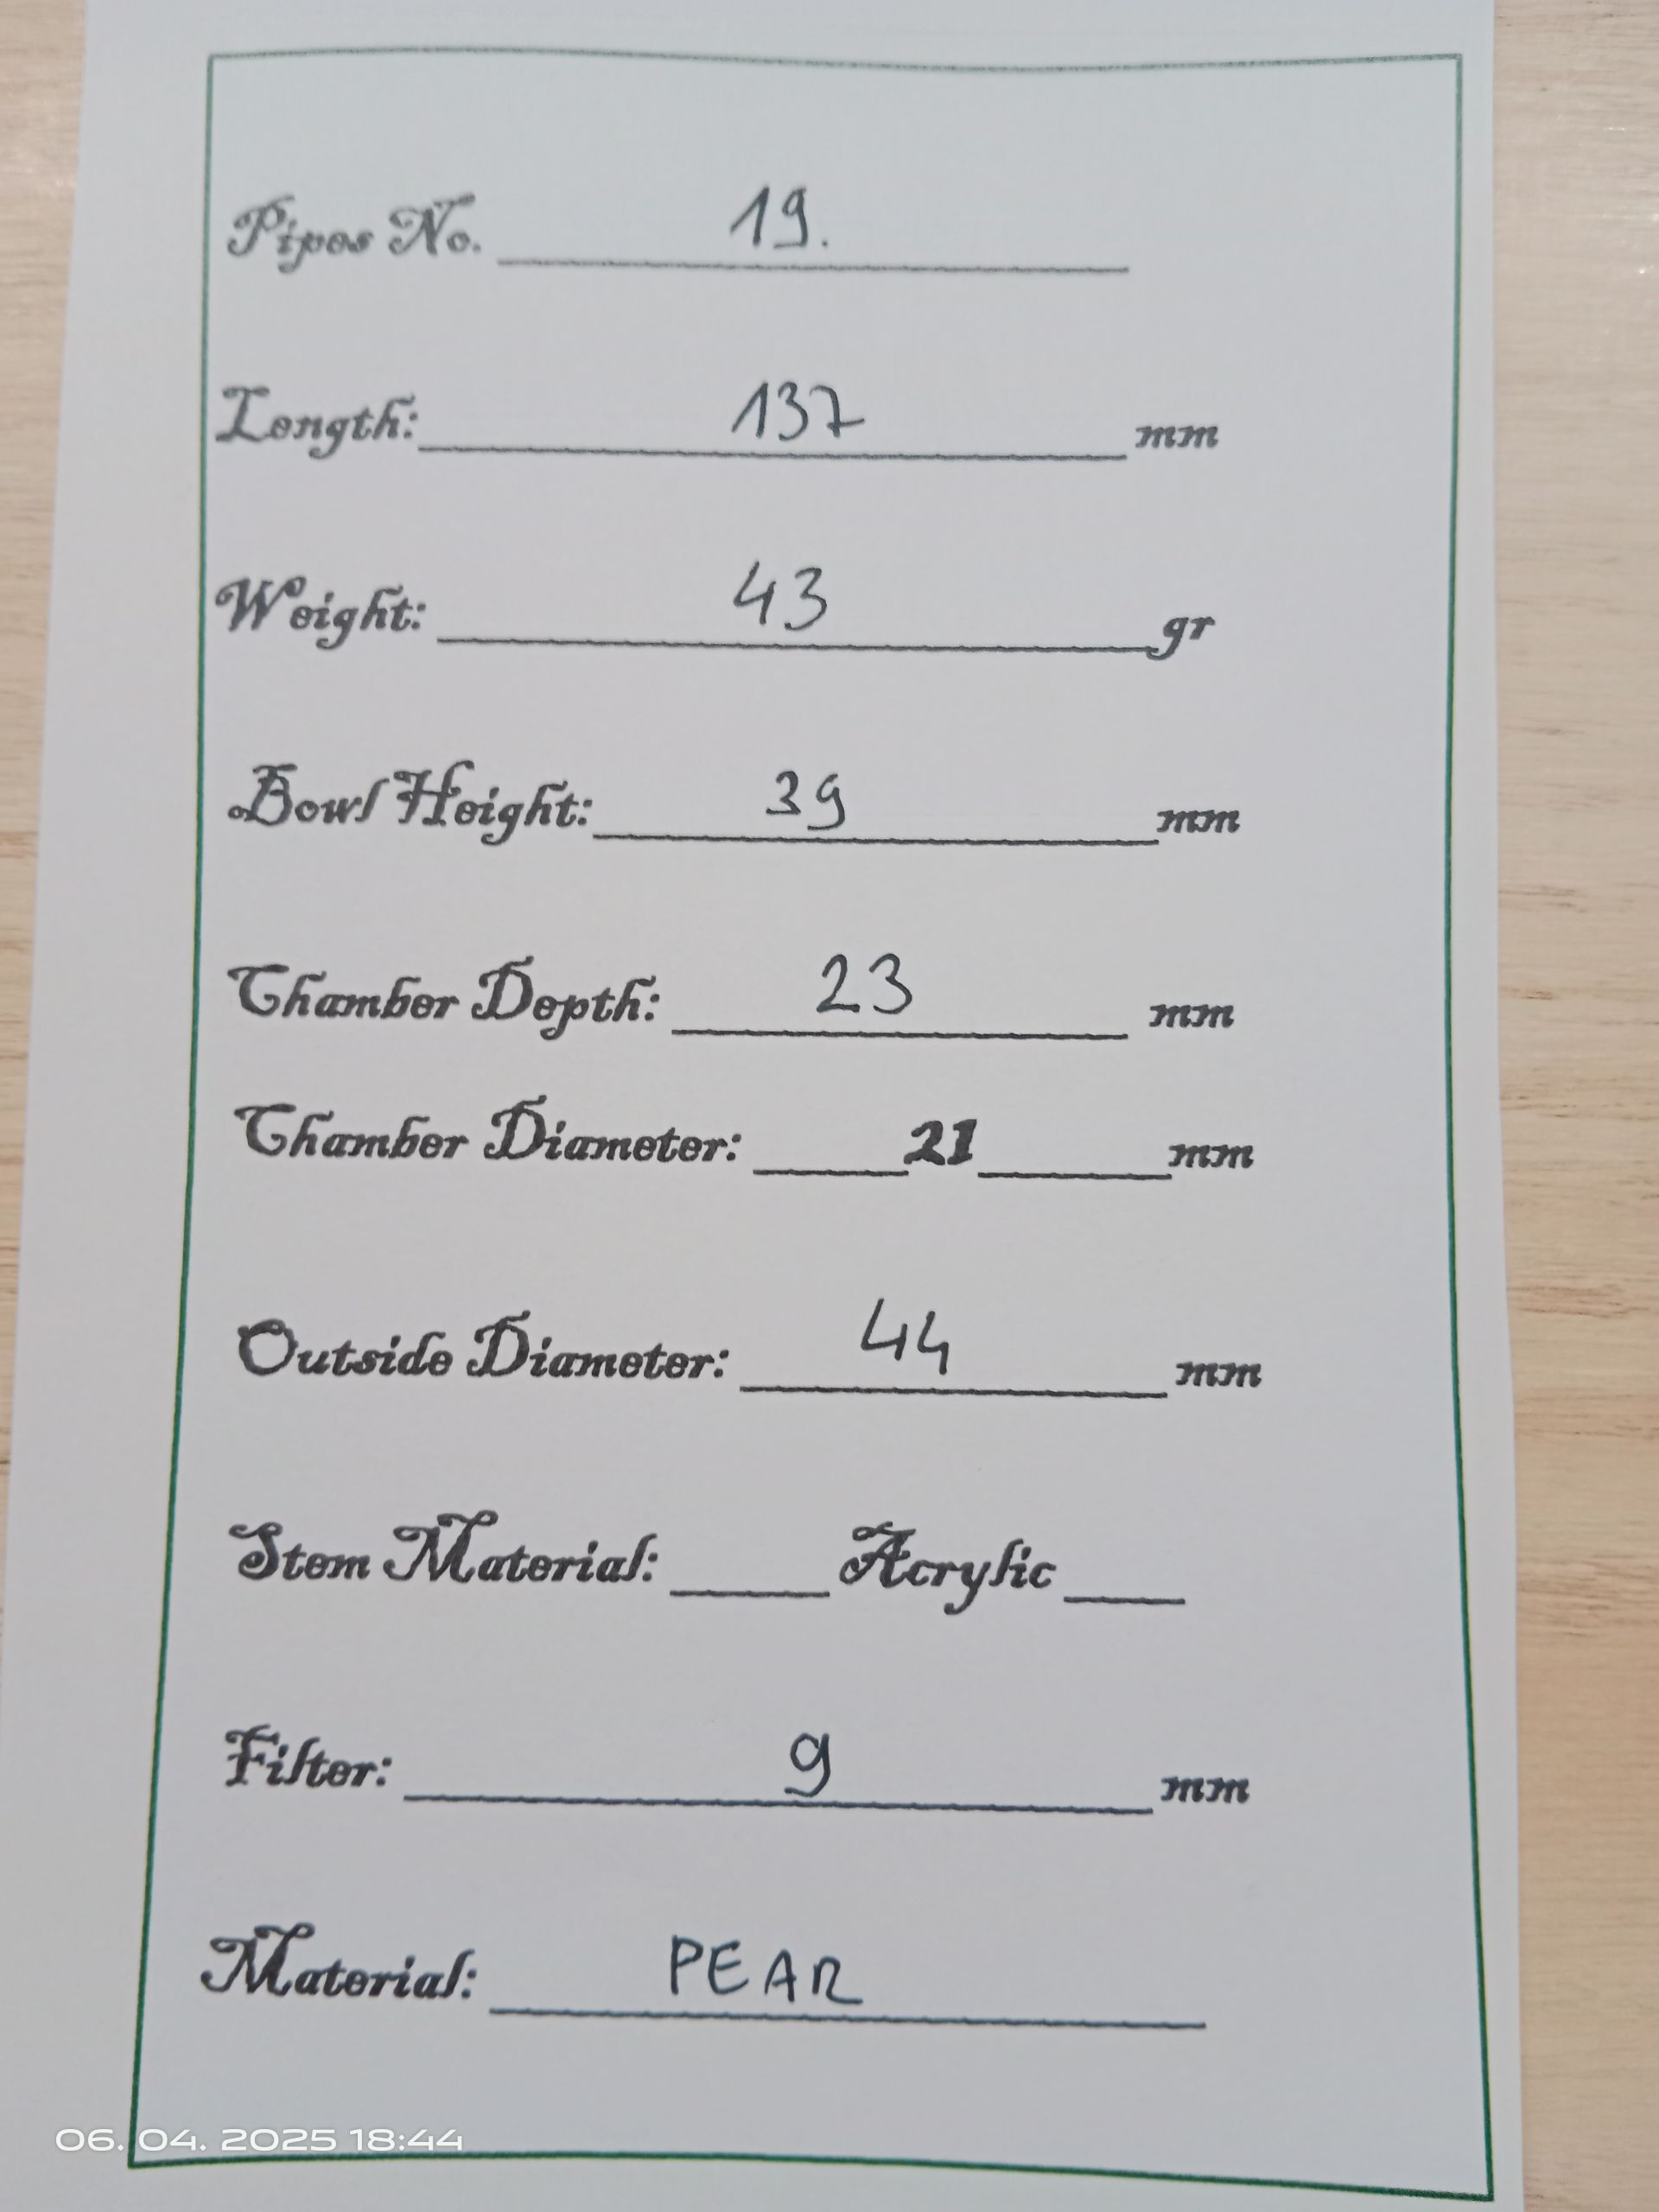 Pipes No. 19.
Length: 137 mm
Weight: 43 gr
Bowl Height: 39 mm
Chamber Depth: 23 mm
Chamber Diameter: 21 mm
Outside Diameter: 44 mm
Stem Material: Acrylic
Filter: 9 mm
Material: PEAR
06. 04. 2025 18:44